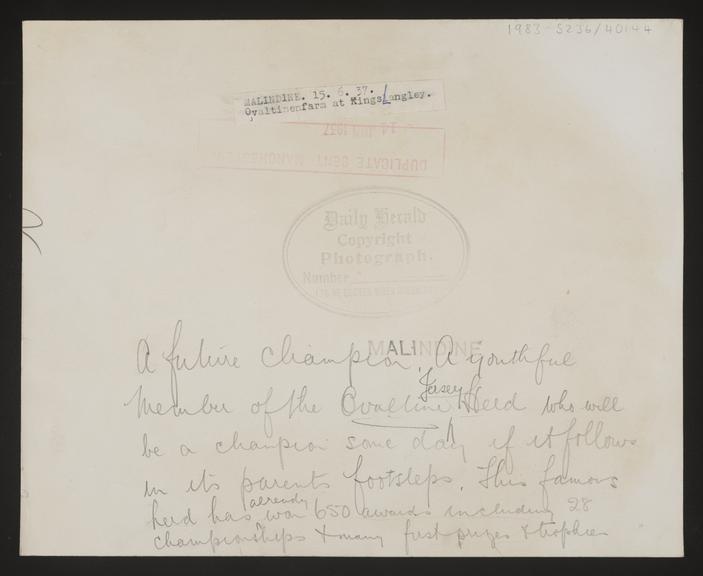 1983-5236/40144
MALINDINE. 15. 6. 37.
Ovaltinenfarm at Kings Langley.
14 JUN 1937
DUPLICATE SENT MANCHESTER
Daily Herald
Copyright
Photograph.
Number
MALINDINE
A future Champion. A youthful
Member of the Ovaltine Jersey Herd who will
be a champion some day if it follows
in its parents footsteps. This famous
herd has already won 650 awards including 28
championships & many first prizes & trophies